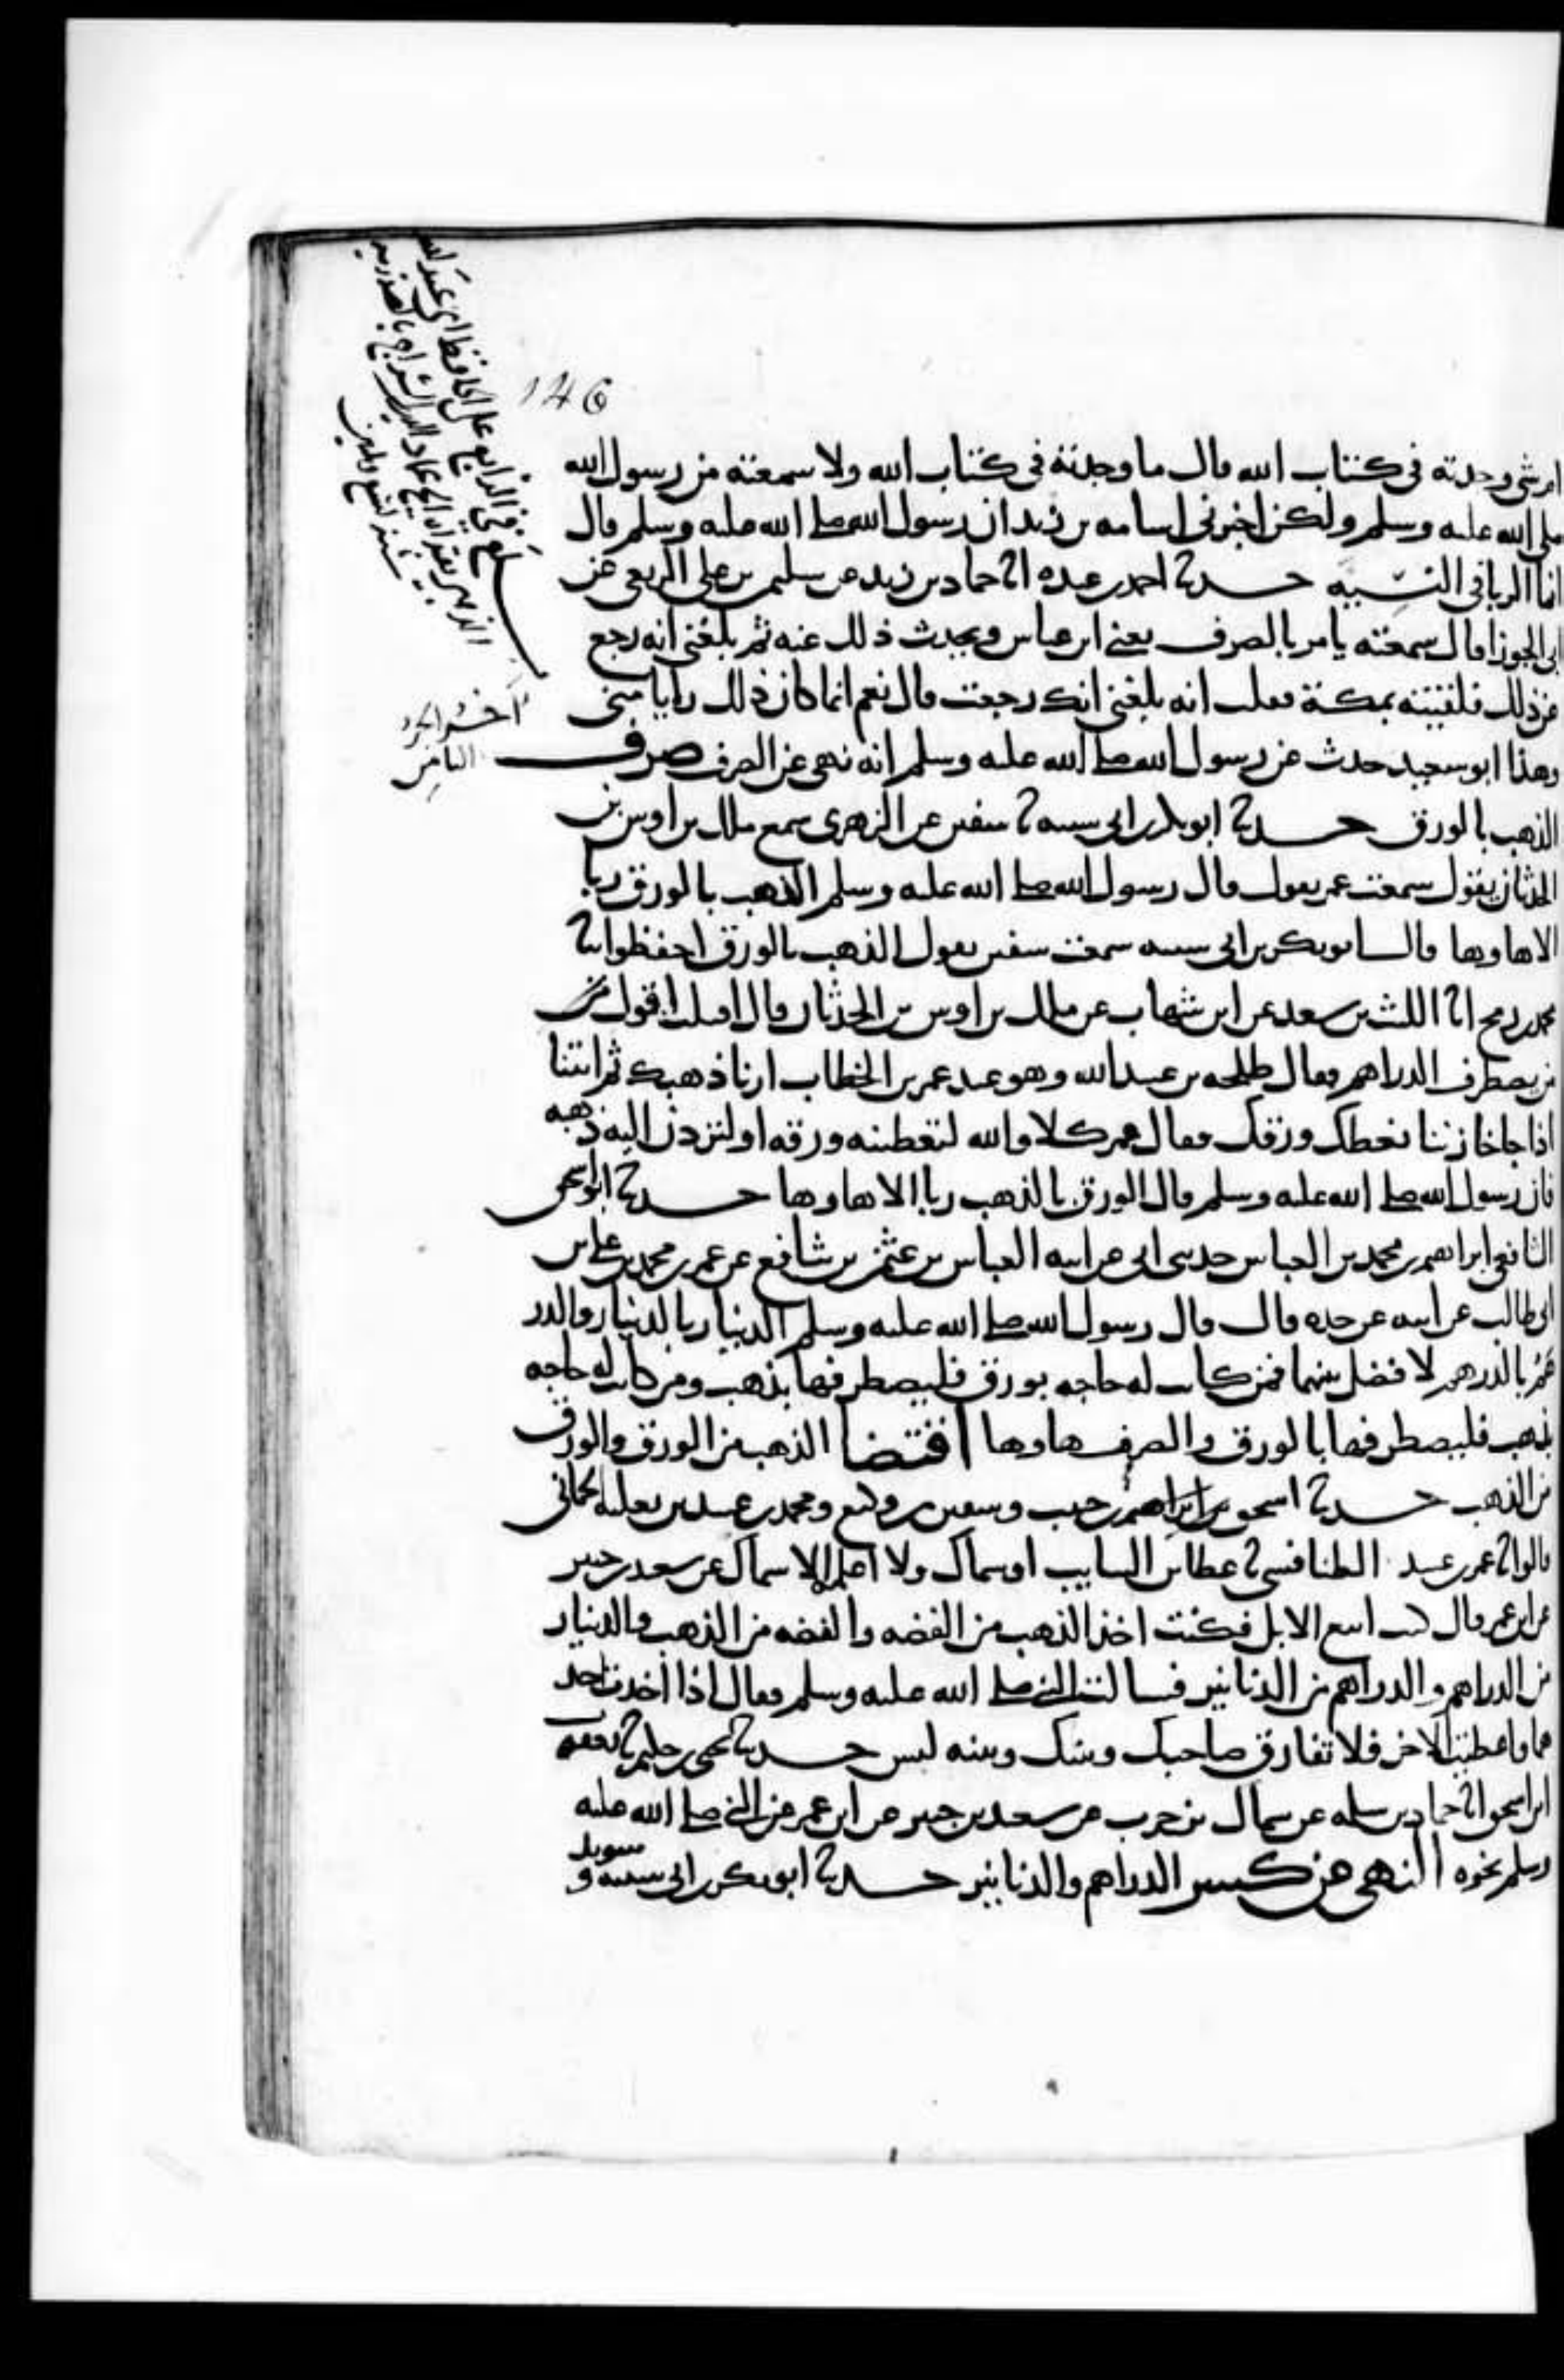 146
ام شي وجدته في كتاب الله قال ما وجدته في كتاب الله ولا سمعته من رسول الله
صلى الله عليه وسلم ولكن اخبرني اسامه بن زيد ان رسول الله صلى الله عليه وسلم قال
انما الربا في النسيه حدثنا احمد بن عبده انا حماد بن زيد عن سليمن بن علي الربعي عن
ابي الجوزا قال سمعته يامر بالصرف يعني ابن عباس ويحدث ذلك عنه ثم بلغني انه رجع
عن ذلك فلقيته بمكة فقلت انه بلغني انك رجعت قال نعم انما كان ذلك رايا مني
وهذا ابو سعيد حدث عن رسول الله صلى الله عليه وسلم انه نهى عن الصرف صرف
الذهب بالورق حدثنا ابو بكر بن ابي شيبه نا سفين عن الزهري سمع ملك بن اوس بن
الحدثان يقول سمعت عمر يقول قال رسول الله صلى الله عليه وسلم الذهب بالورق ربا
الا ها وها قال ابو بكر بن ابي شيبه سمعت سفين يقول الذهب بالورق احفظوا نا
محمد بن رمح انا الليث بن سعد عن ابن شهاب عن ملك بن اوس بن الحدثان قال اقبلت اقول من
من يصطرف الدراهم فقال طلحه بن عبيد الله وهو عند عمر بن الخطاب ارنا ذهبك ثم ائتنا
اذا جا خازننا نعطك ورقك فقال عمر كلا والله لتعطينه ورقه او لتردن اليه ذهبه
فان رسول الله صلى الله عليه وسلم قال الورق بالذهب ربا الا ها وها حدثنا ابو اسحق
الشافعي ابراهيم بن محمد بن العباس حدثني ابي عن ابيه العباس بن عثمن بن شافع عن عمر بن محمد بن علي بن
ابي طالب عن ابيه عن جده قال قال رسول الله صلى الله عليه وسلم الدينار بالدينار والدر
هم بالدرهم لا فضل بينهما فمن كانت له حاجه بورق فليصطرفها بذهب ومن كانت له حاجه
بذهب فليصطرفها بالورق والصرف ها وها اقتضا الذهب من الورق والورق
من الذهب حدثنا اسحق بن ابراهيم بن حبيب وسفين بن وكيع ومحمد بن عبيد بن ثعلبه الحماني
قالوا نا عمر بن عبيد الطنافسي نا عطا بن السايب او سماك ولا اعلم الا سماك عن سعيد بن جبير
عن ابن عمر قال كنت ابيع الابل فكنت اخذ الذهب من الفضه والفضه من الذهب والدنيار
من الدراهم والدراهم من الدنانير فسالت النبي صلى الله عليه وسلم فقال اذا اخذت احد
هما واعطيت الاخر فلا تفارق صاحبك وبينك وبينه لبس حدثنا يحيى بن حكيم نا يعقوب
ابن اسحق انا حماد بن سلمه عن سماك بن حرب عن سعيد بن جبير عن ابن عمر عن النبي صلى الله عليه
وسلم نحوه النهي عن كسر الدراهم والدنانير حدثنا ابو بكر بن ابي شيبه و سويد
بلغ في الرابع على الحافظ ابي عبد الله
اخر الجزء
الثامن